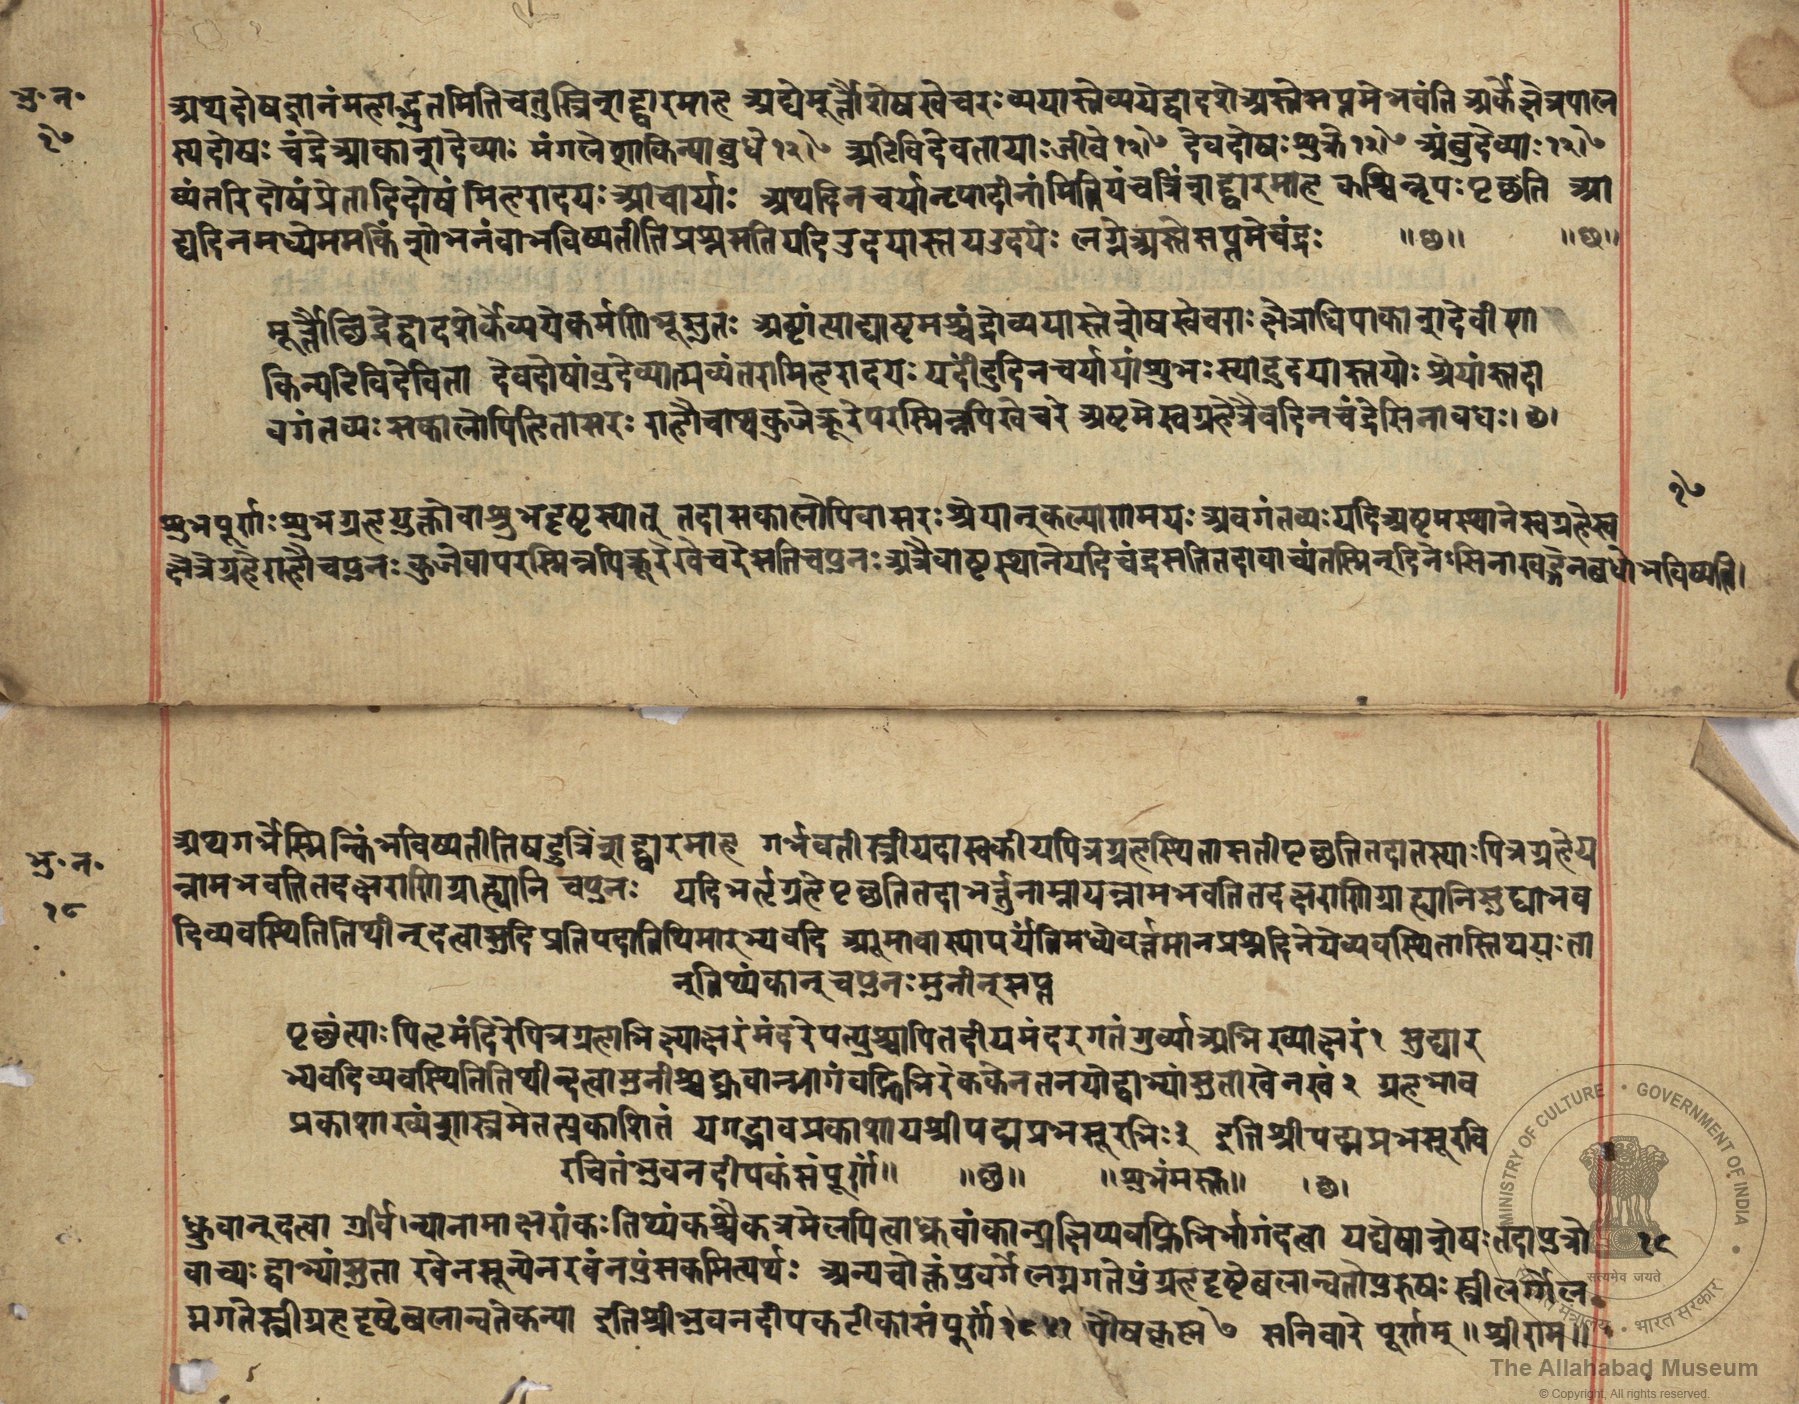 भु॰ न॰
१७
अथ दोषज्ञानं महाद्भुतमिति चतुस्त्रिंशद्द्वारमाह अद्ये मूर्त्तौ शेष खेचरः व्ययास्ते व्यये द्वादशे अस्ते सप्तमे भवंति अर्के क्षेत्रपाल
स्य दोषः चंद्रे आकाशदेव्याः मंगले शाकिन्या बुधे १२।७ अटविदेवतायाः जीवे १२।७ देवदोषः शुक्रे १२।७ अंबुदेव्याः १२।७
व्यंतरिदोषं प्रेतादिदोषं मिहरादयः आचार्याः अथ दिनचर्यानृपादीनांमिति पंचत्रिंशद्द्वारमाह कश्चिन्नृपः पृच्छति अ
द्यदिनमध्ये मम किं शोभनं वा भविष्यतीति प्रश्न सति यदि उदयास्तय उदये लग्ने अस्ते सप्तमे चंद्रः ॥छ॥ ॥छ॥
मूर्त्तौ छिद्रे द्वादशेर्के व्यये कर्मणि भूसुतः अष्टांत्याद्याष्टमश्चंद्रो व्ययास्ते शेष खेचराः क्षेत्राधिपाकाशदेवी शा
किन्यटविदेविता देवदोषांबुदेव्यात्मव्यंतरामिहरादयः यदींदुदिनचर्यायां शुभः स्यादुदयास्तयोः श्रेयांस्तदा
वगंतव्यः सकालोपि हितासरः राहौ वाथ कुजे क्रूरे परस्मिन्नपि खेचरे अष्टमे स्वग्रहे त्रैव दिनचंद्रेसिनावधः।छ।
१७
शुभपूर्णाः शुभग्रहयुक्तो वा शुभदृष्ट स्यात् तदा सकालोपि वासरः श्रेयान् कल्याणमयः अवगंतव्यः यदि अष्टमस्थाने स्वग्रहे स्व
क्षेत्रे ग्रहे राहौ च पुनः कुजे वा परस्मिन्नपि क्रूरे खेचरे सति च पुनः अत्रैवाष्टस्थाने यदि चंद्र सति तदा वाच्यं तस्मिन् दिने ऽसिना खङ्गेन बधो भविष्यति।
भु॰ न॰
१८
अथ गर्भेस्मिन्किं भविष्यतीति षट्त्रिंशद्द्वारमाह गर्भवती स्त्री यदा स्वकीयपित्रग्रहस्थिता सती पृच्छति तदा तस्याः पित्रग्रहे य
न्नाम भवति तदक्षराणि ग्राह्यानि च पुनः यदि भर्तृग्रहे पृच्छति तदा भर्त्तुनाम्ना यन्नाम भवति तदक्षराणि ग्राह्यानि सुद्याभव
दिव्यवस्थिति तिथीन् दत्वा सुदि प्रतिपदा तिथिमारभ्य वदि अमावास्या पर्यंति मध्ये वर्त्तमान प्रश्नदिने ये व्यवस्थितास्तिथयः ता
न् तिथ्यंकान् च पुनः मुनीन् सप्त
पृच्छंत्याः पितृमंदिरे पित्रग्रहाभिख्याक्षरं मंदरे पत्युश्चापि तदीयमंदरगतं गुर्व्या अभिख्याक्षरं १ सुद्यार
भ्यवदिव्यवस्थिति तिथीन्दत्वा मुनीश्च ध्रुवान्भागं वह्निभिरेककेन तनयो द्वाभ्यां सुता खेन खं २ ग्रहभाव
प्रकाशाख्यं शास्त्रमेतत्प्रकाशितं यगद्भावप्रकाशाय श्रीपद्मप्रभसूरभिः ३ इति श्रीपद्मप्रभसूरवि
रचितं भुवनदीपकं संपूर्णं॥ ॥छ॥ ॥शुभंमस्तु॥ ।छ।
ध्रुवान् दत्वा गुर्वि।न्यानामाक्षरांकः तिथ्यंकश्चैकत्र मेलपित्वा ध्रुवांकान्प्रक्षिप्य वह्निभिर्भागं दत्वा यद्येषा शेषः तदा पुत्रो
१८
वाच्यः द्वाभ्यां सुता खेन सून्येन खंनपुंसकमित्यर्थः अन्यचोक्तं पुवर्गे लग्नगते पुंग्रहदृष्टे बलान्वतो पुरुषः स्त्री लर्ग्गे ल
ग्नगते स्त्रीग्रहदृष्टे बलान्वते कन्या इति श्रीभुवनदीपकटीका संपूर्णा १८५१ पौषकृष्ण ७ सनिवारे पूर्णाम्॥श्रीराम॥
MINISTRY OF CULTURE • GOVERNMENT OF INDIA
सत्यमेव जयते
मंत्रालय • भारत सरकार
The Allahabad Museum
© Copyright, All rights reserved.